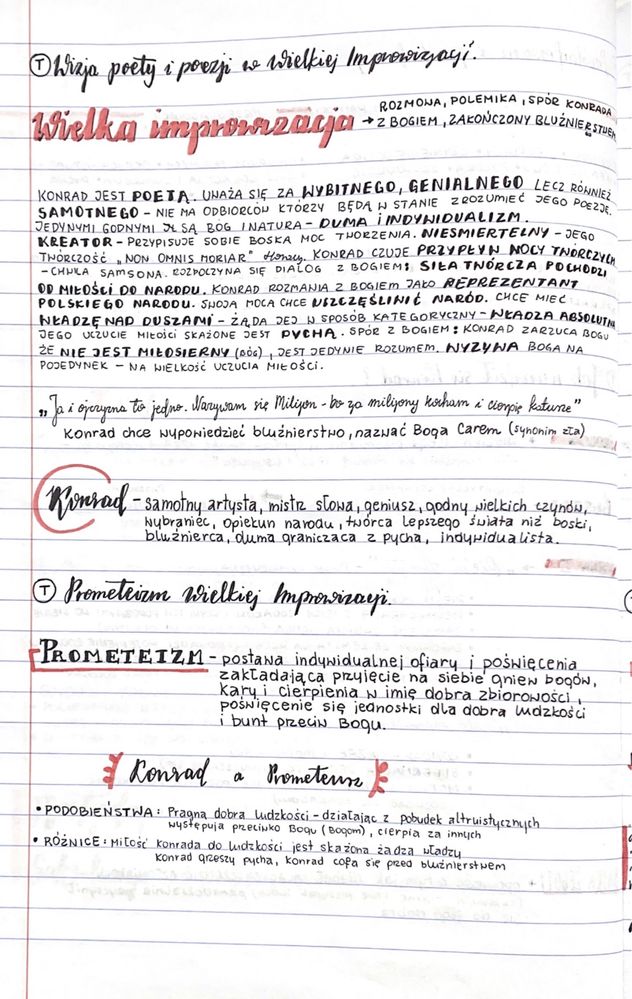 T Wizja poety i poezji w Wielkiej Improwizacji.
Wielka improwizacja → ROZMOWA, POLEMIKA, SPÓR KONRADA
Z BOGIEM, ZAKOŃCZONY BLUŹNIERSTWEM
KONRAD JEST POETĄ. UWAŻA SIĘ ZA WYBITNEGO, GENIALNEGO LECZ RÓWNIEŻ
SAMOTNEGO - NIE MA ODBIORCÓW KTÓRZY BĘDĄ W STANIE ZROZUMIEĆ JEGO POEZJĘ.
JEDYNYMI GODNYMI JĄ SĄ BÓG I NATURA - DUMA I INDYWIDUALIZM.
KREATOR - PRZYPISUJE SOBIE BOSKĄ MOC TWORZENIA. NIEŚMIERTELNY - JEGO
TWÓRCZOŚĆ „NON OMNIS MORIAR" Horacy. KONRAD CZUJE PRZYPŁYW MOCY TWÓRCZYCH
- CHWILA SAMSONA. ROZPOCZYNA SIĘ DIALOG Z BOGIEM: SIŁA TWÓRCZA POCHODZI
OD MIŁOŚCI DO NARODU. KONRAD ROZMAWIA Z BOGIEM JAKO REPREZENTANT
POLSKIEGO NARODU. SWOJĄ MOCĄ CHCE USZCZĘŚLIWIĆ NARÓD. CHCE MIEĆ
WŁADZĘ NAD DUSZAMI - ŻĄDA JEJ W SPOSÓB KATEGORYCZNY - WŁADZA ABSOLUTNA
JEGO UCZUCIE MIŁOŚCI SKAŻONE JEST PYCHĄ. SPÓR Z BOGIEM: KONRAD ZARZUCA BOGU
ŻE NIE JEST MIŁOSIERNY (BÓG), JEST JEDYNIE ROZUMEM. WYZYWA BOGA NA
POJEDYNEK - NA WIELKOŚĆ UCZUCIA MIŁOŚCI.
„Ja i ojczyzna to jedno. Nazywam się Milijon - bo za milijony kocham i cierpię katusze"
Konrad chce wypowiedzieć bluźnierstwo, nazwać Boga Carem (synonim zła)
Konrad - samotny artysta, mistrz słowa, geniusz, godny wielkich czynów,
wybraniec, opiekun narodu, twórca lepszego świata niż boski,
bluźnierca, duma granicząca z pychą, indywidualista.
T Prometeizm Wielkiej Improwizacji.
PROMETEIZM - postawa indywidualnej ofiary i poświęcenia
zakładająca przyjęcie na siebie gniew bogów,
kary i cierpienia w imię dobra zbiorowości,
poświęcenie się jednostki dla dobra ludzkości
i bunt przeciw Bogu.
Konrad a Prometeusz
• PODOBIEŃSTWA: Pragną dobra ludzkości - działając z pobudek altruistycznych
występują przeciwko Bogu (Bogom), cierpią za innych
• RÓŻNICE: Miłość Konrada do ludzkości jest skażona żądzą władzy
Konrad grzeszy pychą, Konrad cofa się przed bluźnierstwem